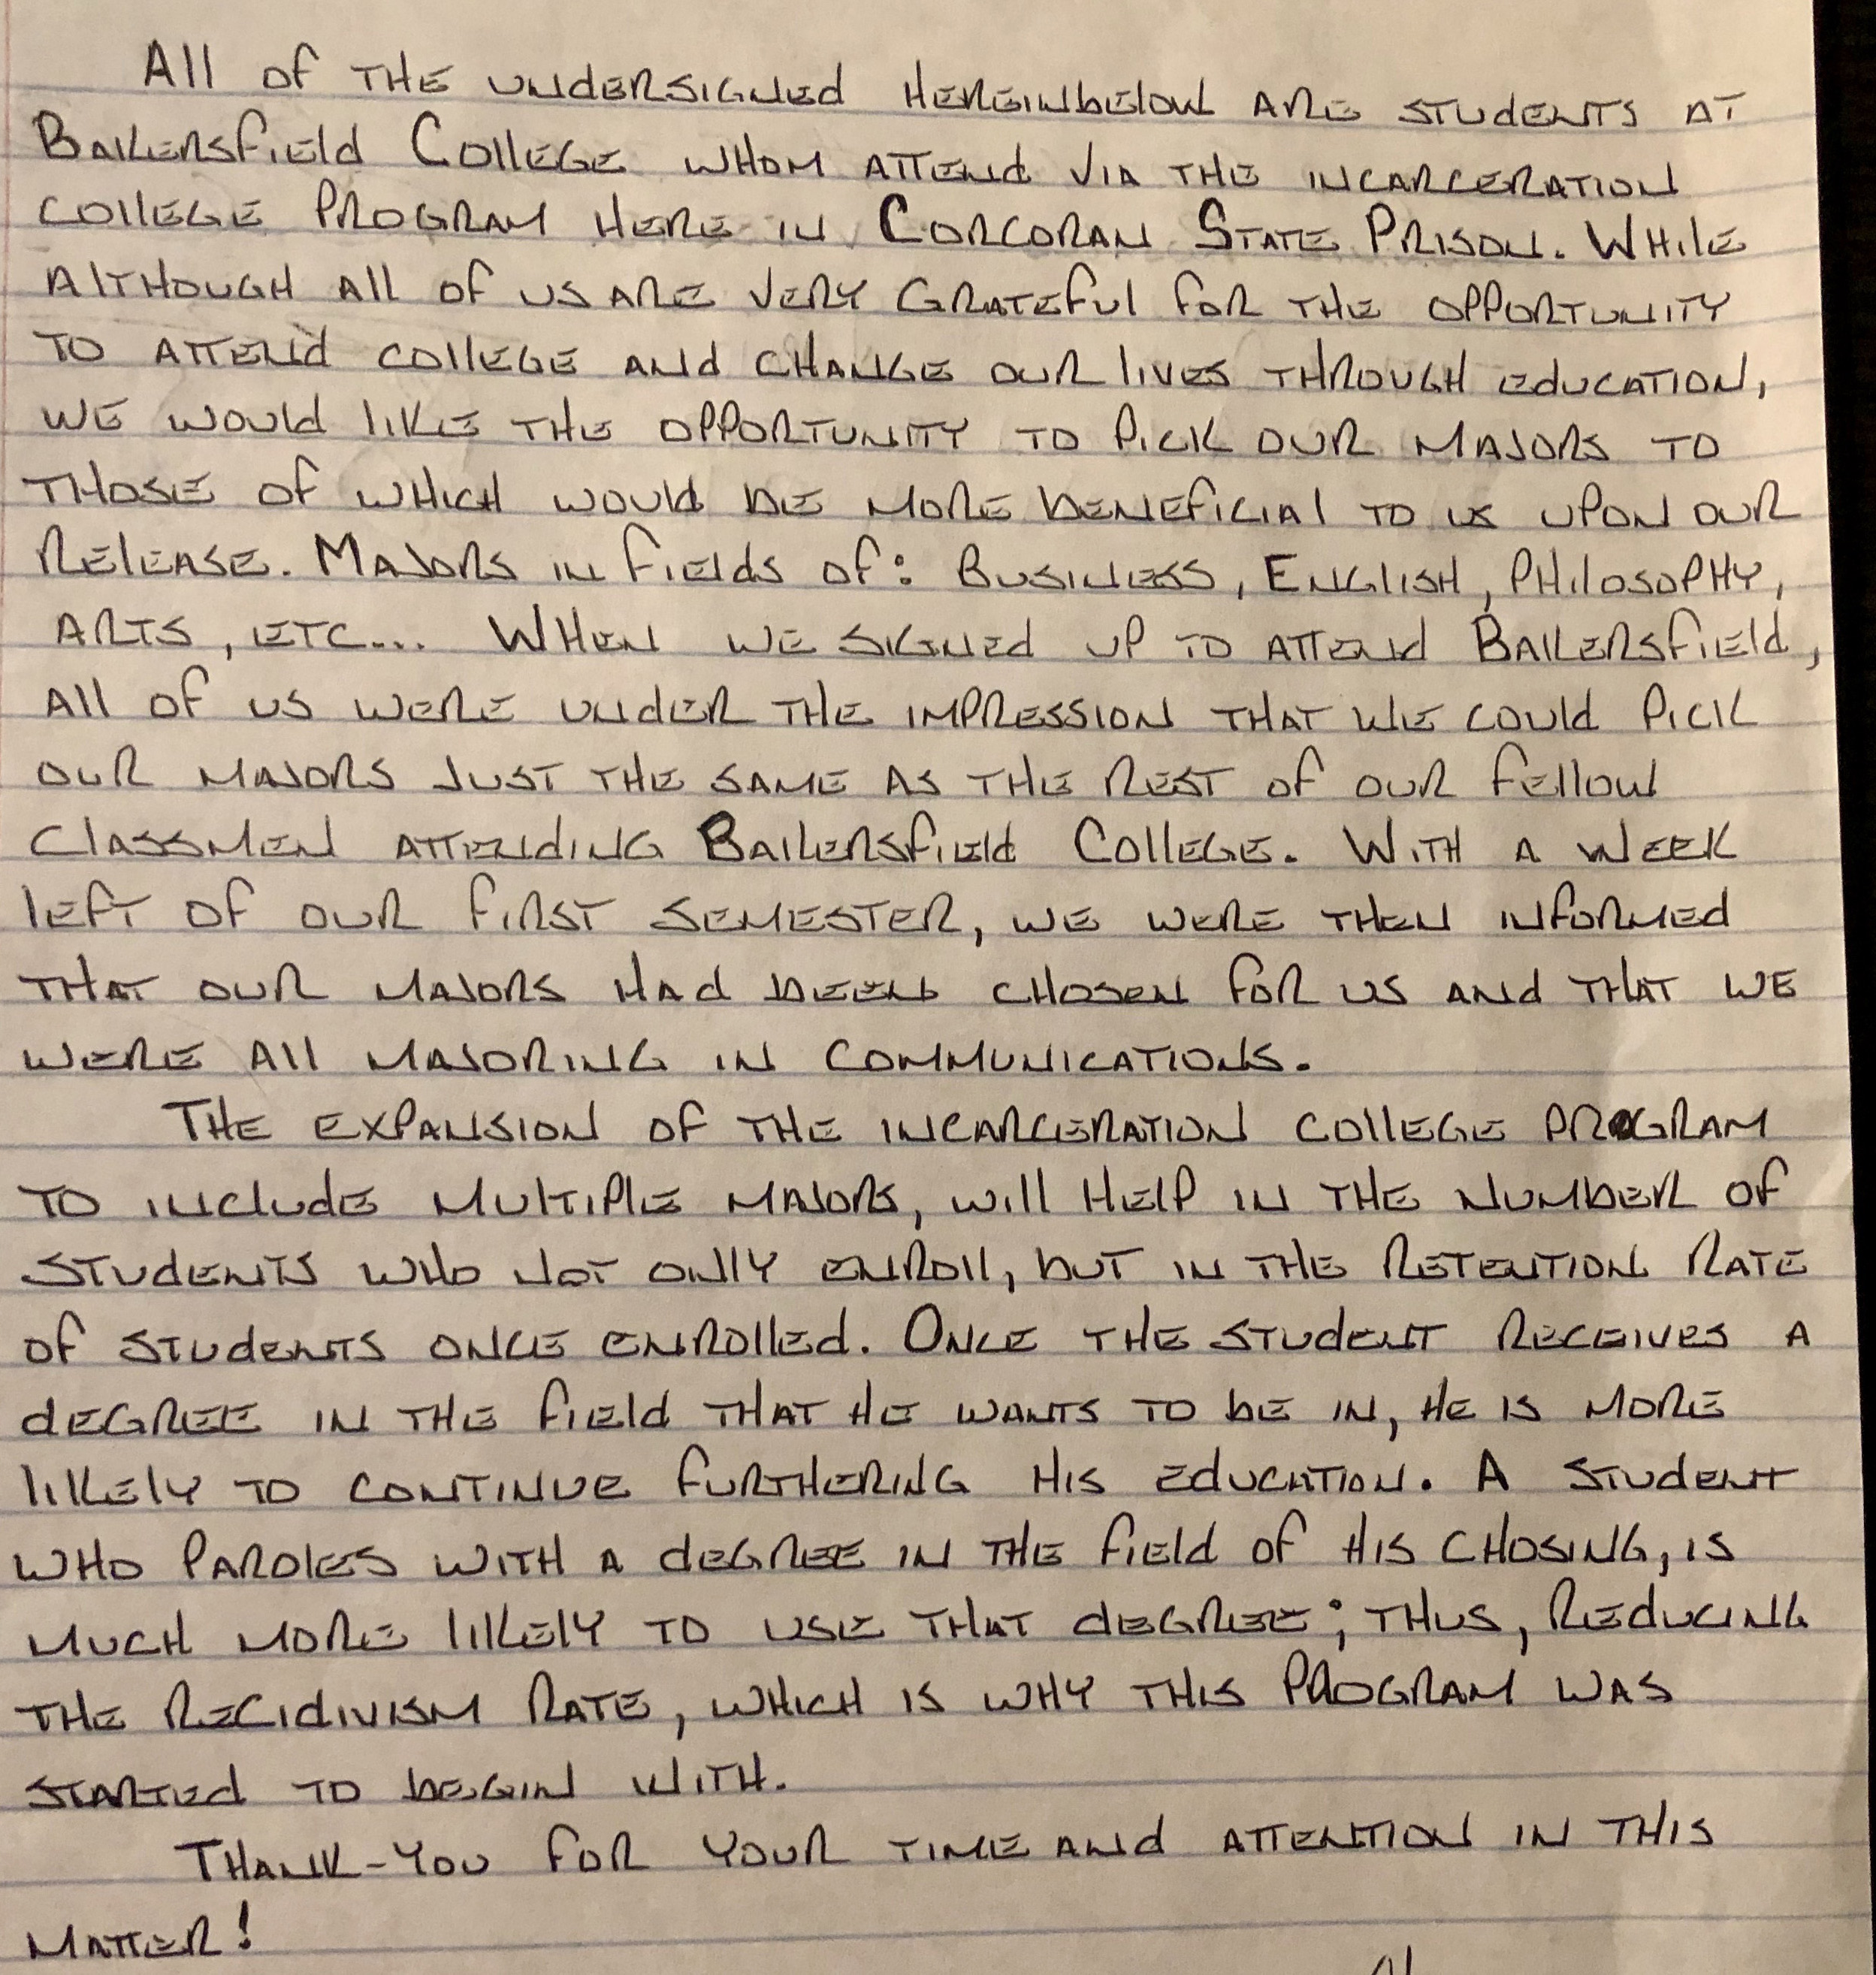 All of the undersigned hereinbelow are students at
Bakersfield College whom attend via the incarceration
college program here in Corcoran State Prison. While
although all of us are very grateful for the opportunity
to attend college and change our lives through education,
we would like the opportunity to pick our majors to
those of which would be more beneficial to us upon our
release. Majors in fields of: Business, English, Philosophy,
Arts, etc... When we signed up to attend Bakersfield,
all of us were under the impression that we could pick
our majors just the same as the rest of our fellow
classmen attending Bakersfield College. With a week
left of our first semester, we were then informed
that our majors had been chosen for us and that we
were all majoring in communications.
The expansion of the incarceration college program
to include multiple majors, will help in the number of
students who not only enroll, but in the retention rate
of students once enrolled. Once the student receives a
degree in the field that he wants to be in, he is more
likely to continue furthering his education. A student
who paroles with a degree in the field of his chosing, is
much more likely to use that degree; thus, reducing
the recidivism rate, which is why this program was
started to begin with.
Thank-you for your time and attention in this
matter!